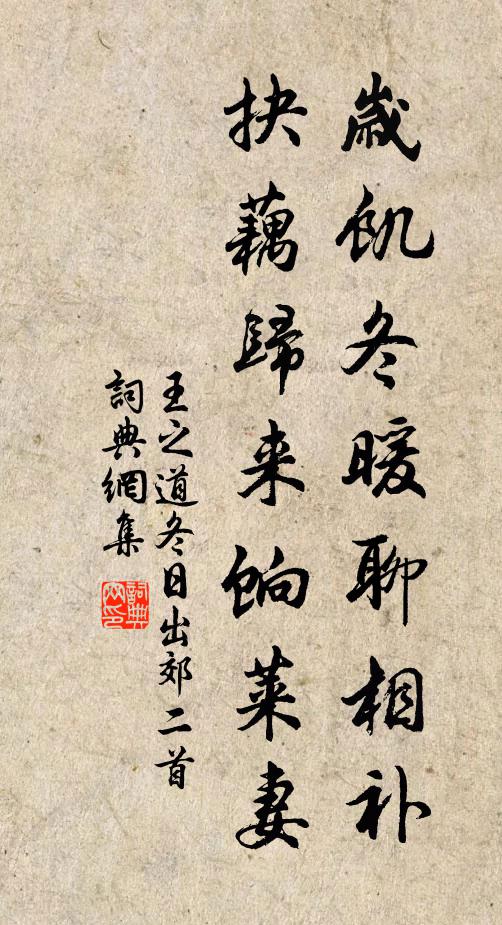 歲飢冬暖聊相补
抉藕歸来餉萊妻
王之道冬日出郊二首
詞典網集
詞典網印